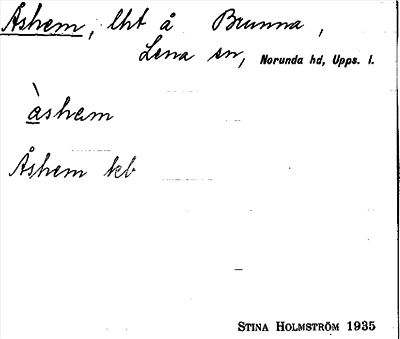 Åshem, lht å Brunna,
Lena sn, Norunda hd, Upps. l.
àshem
Åshem kb
STINA HOLMSTRÖM 1935